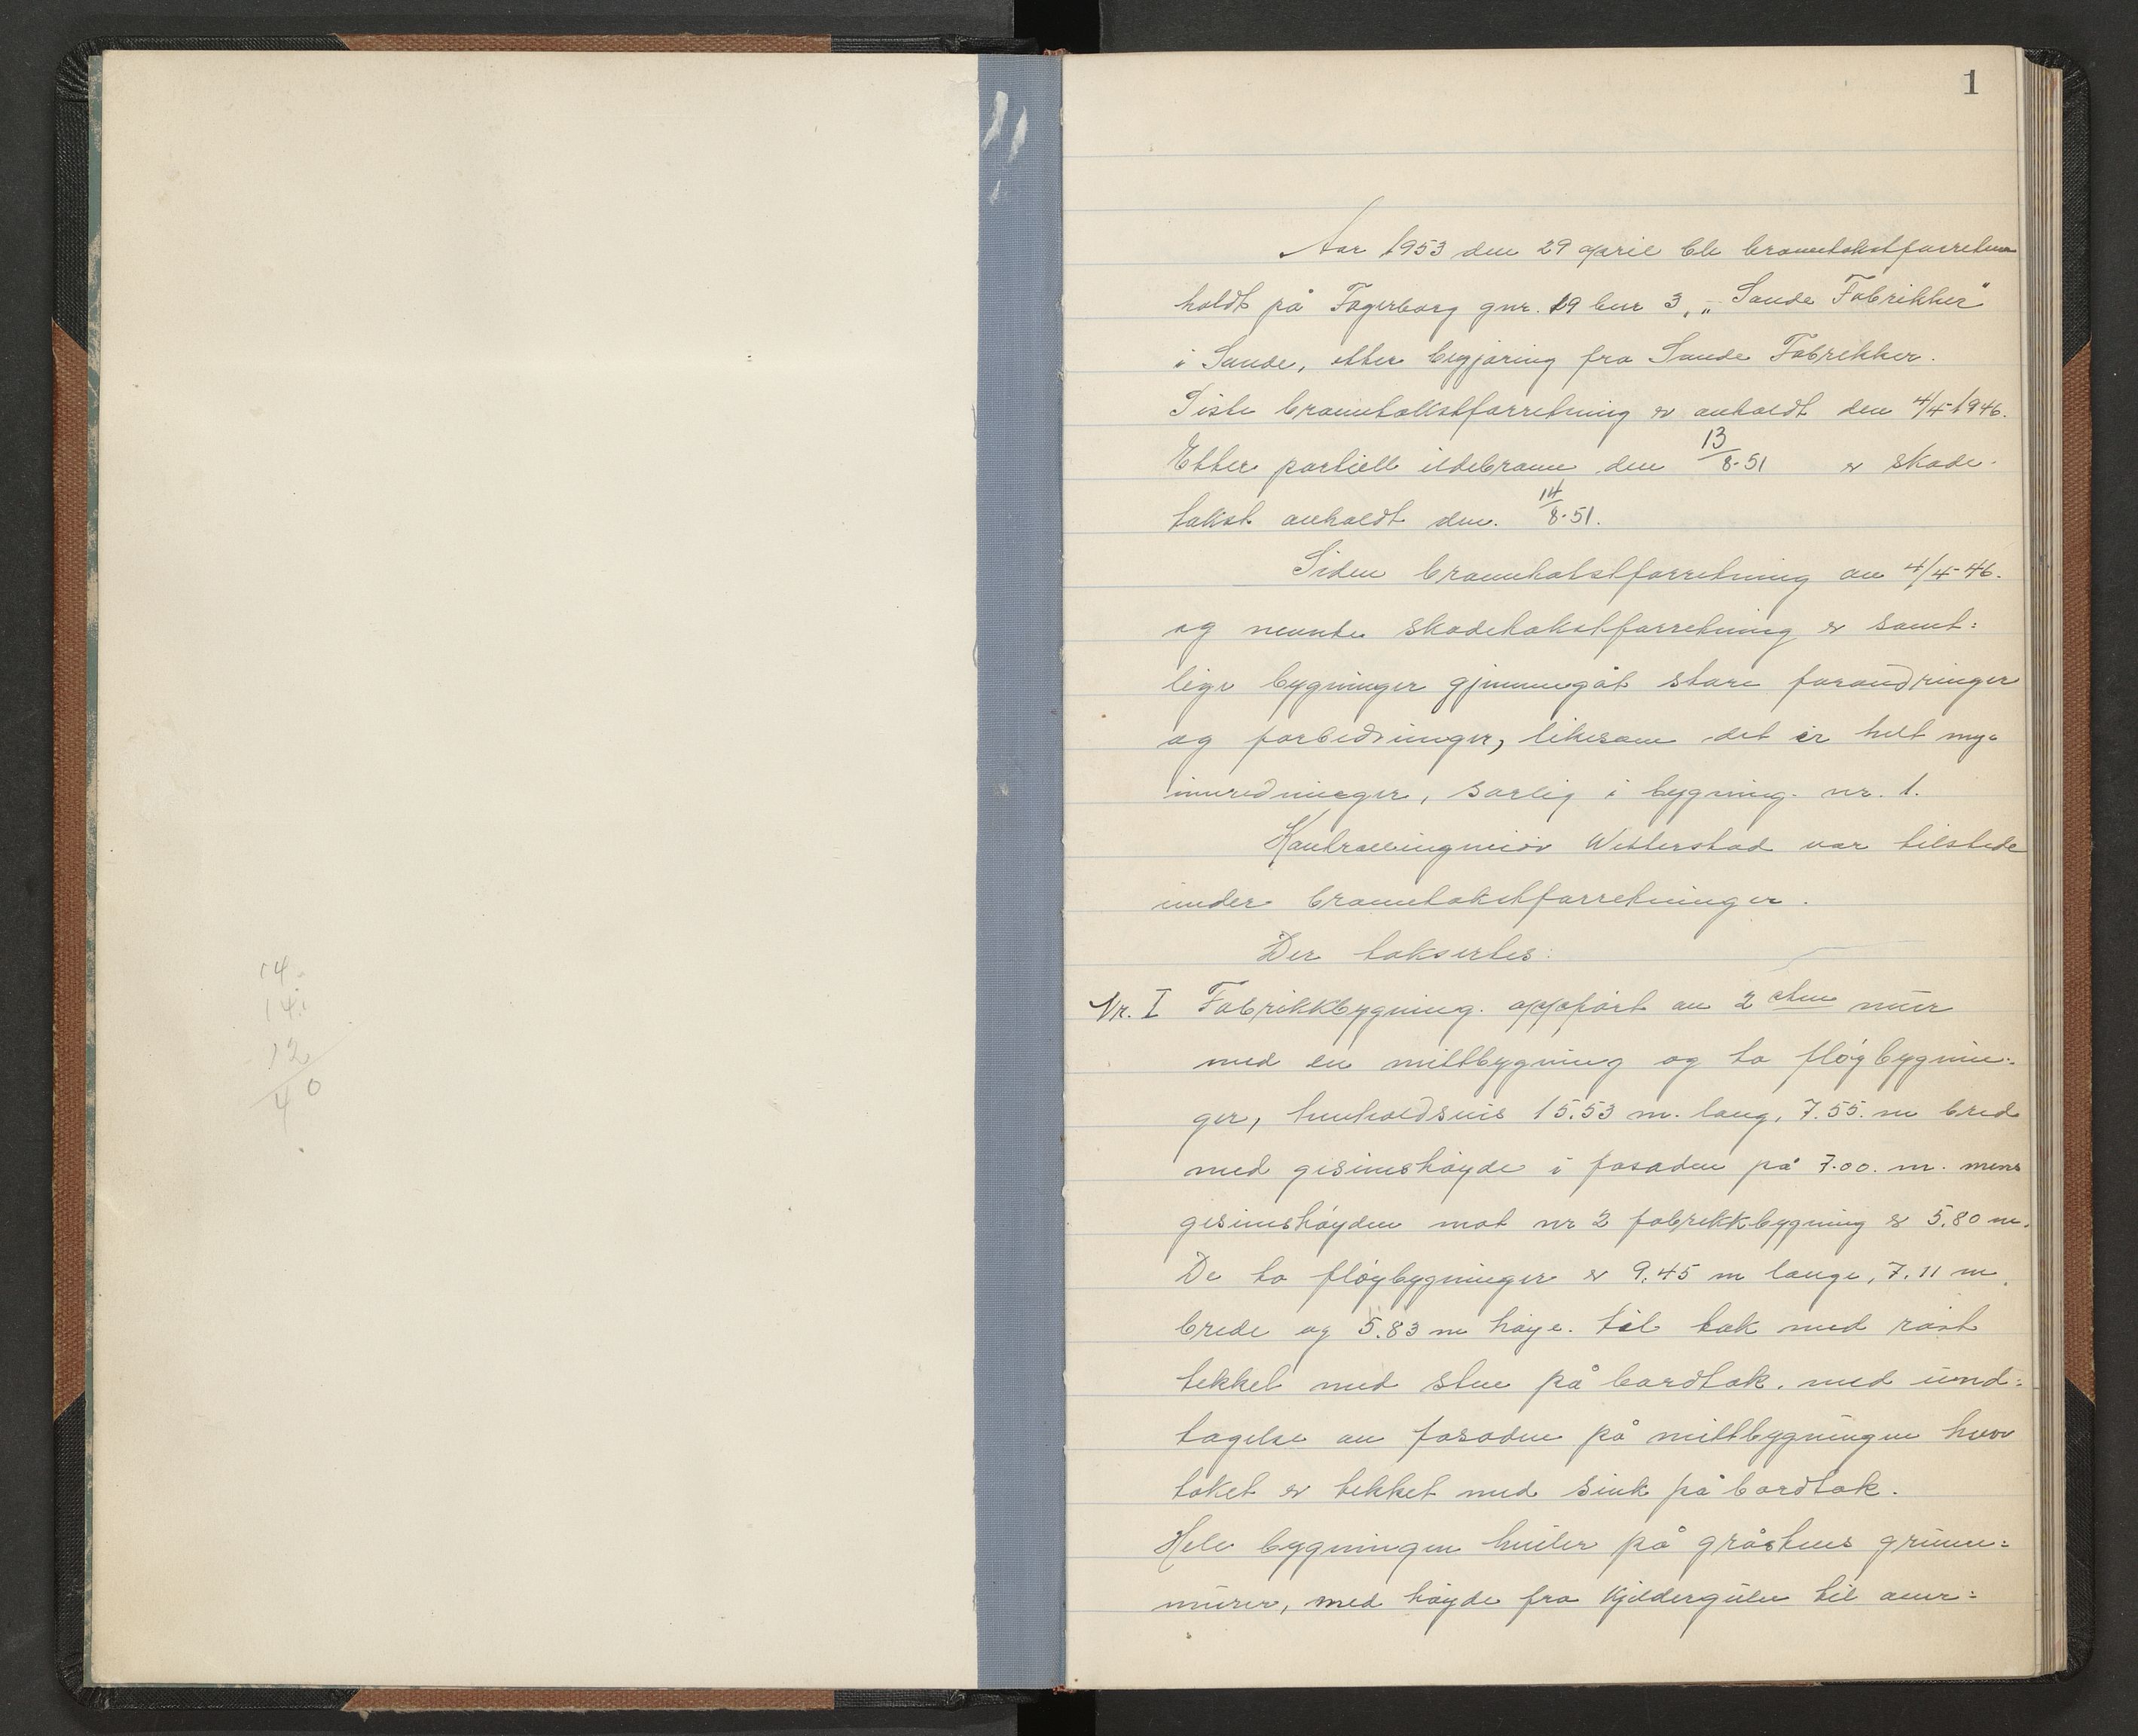 14.
14.
12
40
1
Aar 1953 den 29 april ble branntakstforretning
holdt på Fagerborg gnr. 19 bnr 3, „Sande Fabrikker"
i Sande, etter begjæring fra Sande Fabrikker.
Siste branntakstforretning er avholdt den 4/4-1946.
Etter partiell ildebrann den 13/8-51 er skade-
takst avholdt den. 14/8-51.
Siden branntakstforretning av 4/4-46.
og nevnte skadetakstforretning er samt=
lige bygninger gjennemgåt store forandringer
og forbedringer, likesom det er helt nye
innredninger, særlig i bygning nr. 1.
Kontrollingeniør Wetterstad var tilstede
under branntakstforretningen.
Der taksertes:
Nr. I Fabrikkbygning. oppført av 2 sten mur
med en mittbygning og to fløybygnin=
ger, henholdsvis 15.53 m. lang, 7.55. m bred
med gesimshøyde i fasaden på 7.00. m. mens
gesimshøyden mot nr 2 fabrikkbygning er 5.80 m.
De to fløybygninger er 9.45 m lange, 7.11 m.
brede og 5.83 m høye. til tak med røst
tekket med sten på bordtak. med und=
tagelse av fasaden på mittbygningen hvor
taket er tekket med sink på bordtak.
Hele bygningen hviler på gråstens grunn=
murer, med høyde fra kjeldergulv til over=